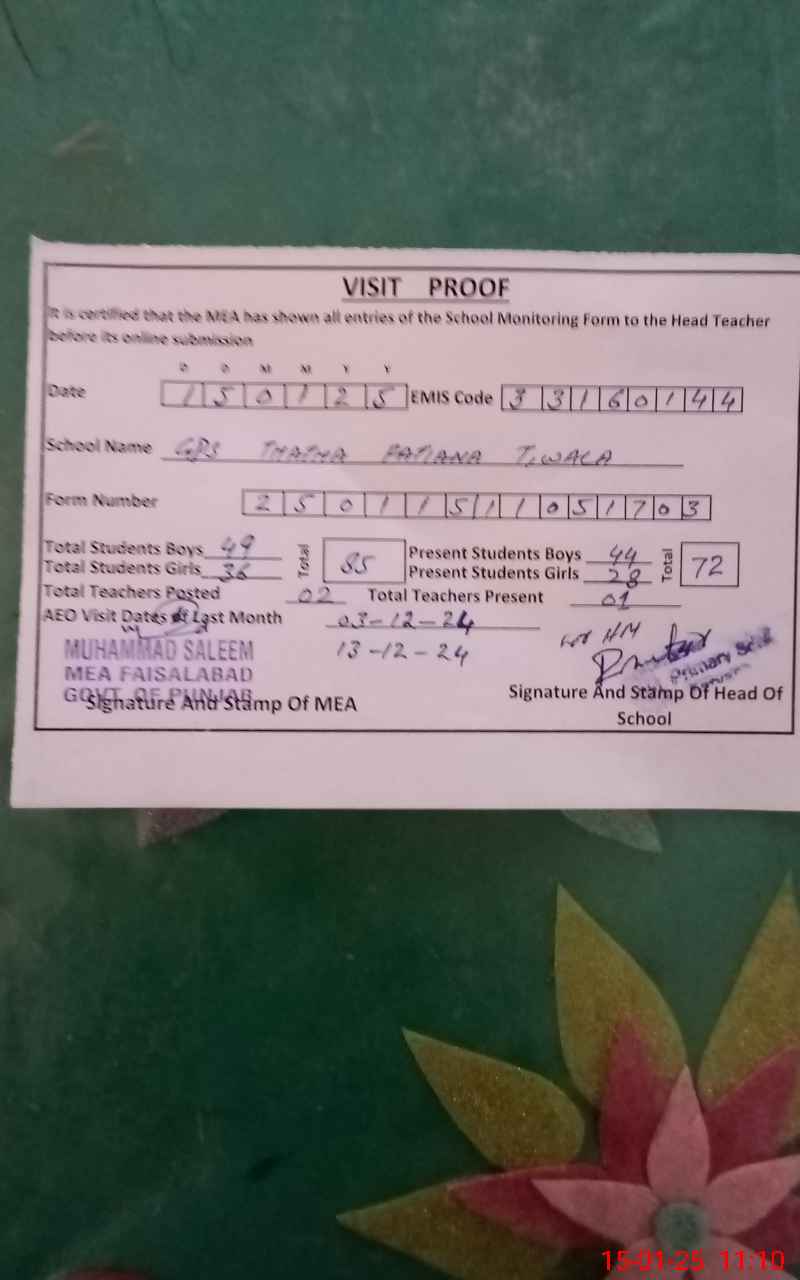 VISIT PROOF
It is certified that the MEA has shown all entries of the School Monitoring Form to the Head Teacher
before its online submission
D D M M Y Y
Date 1 5 0 1 2 5 EMIS Code 3 3 1 6 0 1 4 4
School Name GPS THATHA PATIANA TIWALA
Form Number 2 5 0 1 1 5 1 1 0 5 1 7 0 3
Total Students Boys 49 Total 85 Present Students Boys 44 Total 72
Total Students Girls 36 Present Students Girls 28
Total Teachers Posted 02 Total Teachers Present 01
AEO Visit Dates of Last Month 03-12-24
13-12-24
for HM
MUHAMMAD SALEEM
MEA FAISALABAD
GOVT. OF PUNJAB
Primary
Signature And Stamp Of MEA
Signature And Stamp Of Head Of
School
15-01-25 11:10